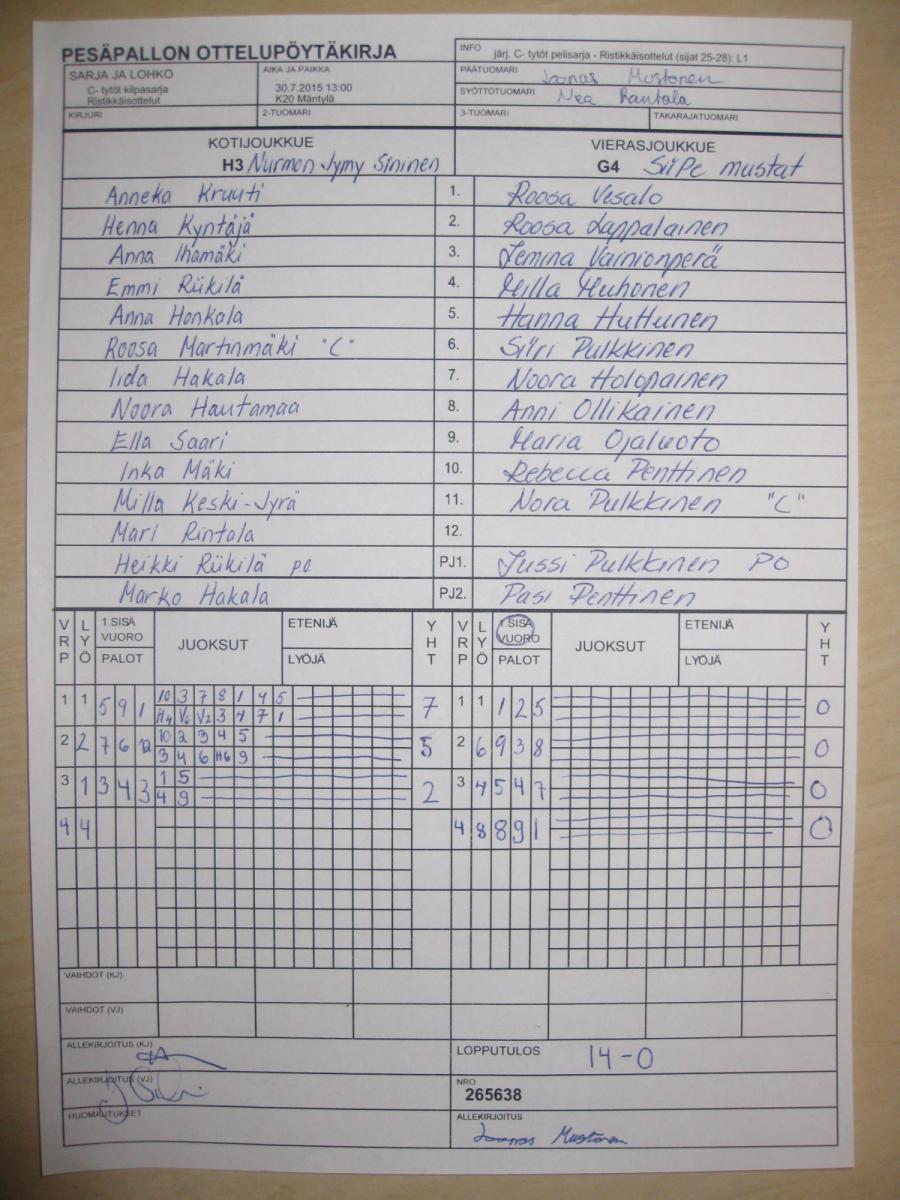 PESÄPALLON OTTELUPÖYTÄKIRJA
INFO järj. C- tytöt pelisarja - Ristikkäisottelut (sijat 25-28): L1
SARJA JA LOHKO
C- tytöt kilpasarja
Ristikkäisottelut
AIKA JA PAIKKA
30.7.2015 13:00
K20 Mäntylä
PÄÄTUOMARI Joonas Mustonen
SYÖTTÖTUOMARI Nea Rautala
KIRJURI 2-TUOMARI 3-TUOMARI TAKARAJATUOMARI
KOTIJOUKKUE VIERASJOUKKUE
H3 Nurmon Jymy Sininen G4 SiiPe mustat
Anneka Kruuti 1. Roosa Vesalo
Henna Kyntäjä 2. Roosa Lappalainen
Anna Ihamäki 3. Jemina Vainionperä
Emmi Riikilä 4. Milla Muhonen
Anna Honkola 5. Hanna Huttunen
Roosa Martinmäki "C" 6. Siiri Pulkkinen
Iida Hakala 7. Noora Holopainen
Noora Hautamaa 8. Anni Ollikainen
Ella Saari 9. Maria Ojaluoto
Inka Mäki 10. Rebecca Penttinen
Milla Keski-Jyrä 11. Nora Pulkkinen "C"
Mari Rintala 12.
Heikki Riikilä PO PJ1. Jussi Pulkkinen PO
Marko Hakala PJ2. Pasi Penttinen
VRP LYÖ 1.SISÄ VUORO PALOT JUOKSUT ETENIJÄ LYÖJÄ YHT VRP LYÖ 1.SISÄ VUORO PALOT JUOKSUT ETENIJÄ LYÖJÄ YHT
1 1 5 9 1 10 3 7 8 1 4 5 7 1 1 1 2 5 0
H4 V6 V2 3 4 7 1
2 2 7 6 12 10 2 3 4 5 5 2 6 9 3 8 0
3 4 6 H6 9
3 1 3 4 3 1 5 2 3 4 5 4 7 0
4 9
4 4 4 8 8 9 1 0
VAIHDOT (KJ)
VAIHDOT (VJ)
ALLEKIRJOITUS (KJ) LOPPUTULOS 14-0
ALLEKIRJOITUS (VJ) NRO
265638
HUOMAUTUKSET ALLEKIRJOITUS
Joonas Mustonen